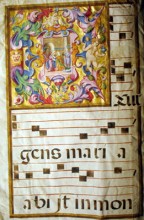 gens mari a
abi jt in mon